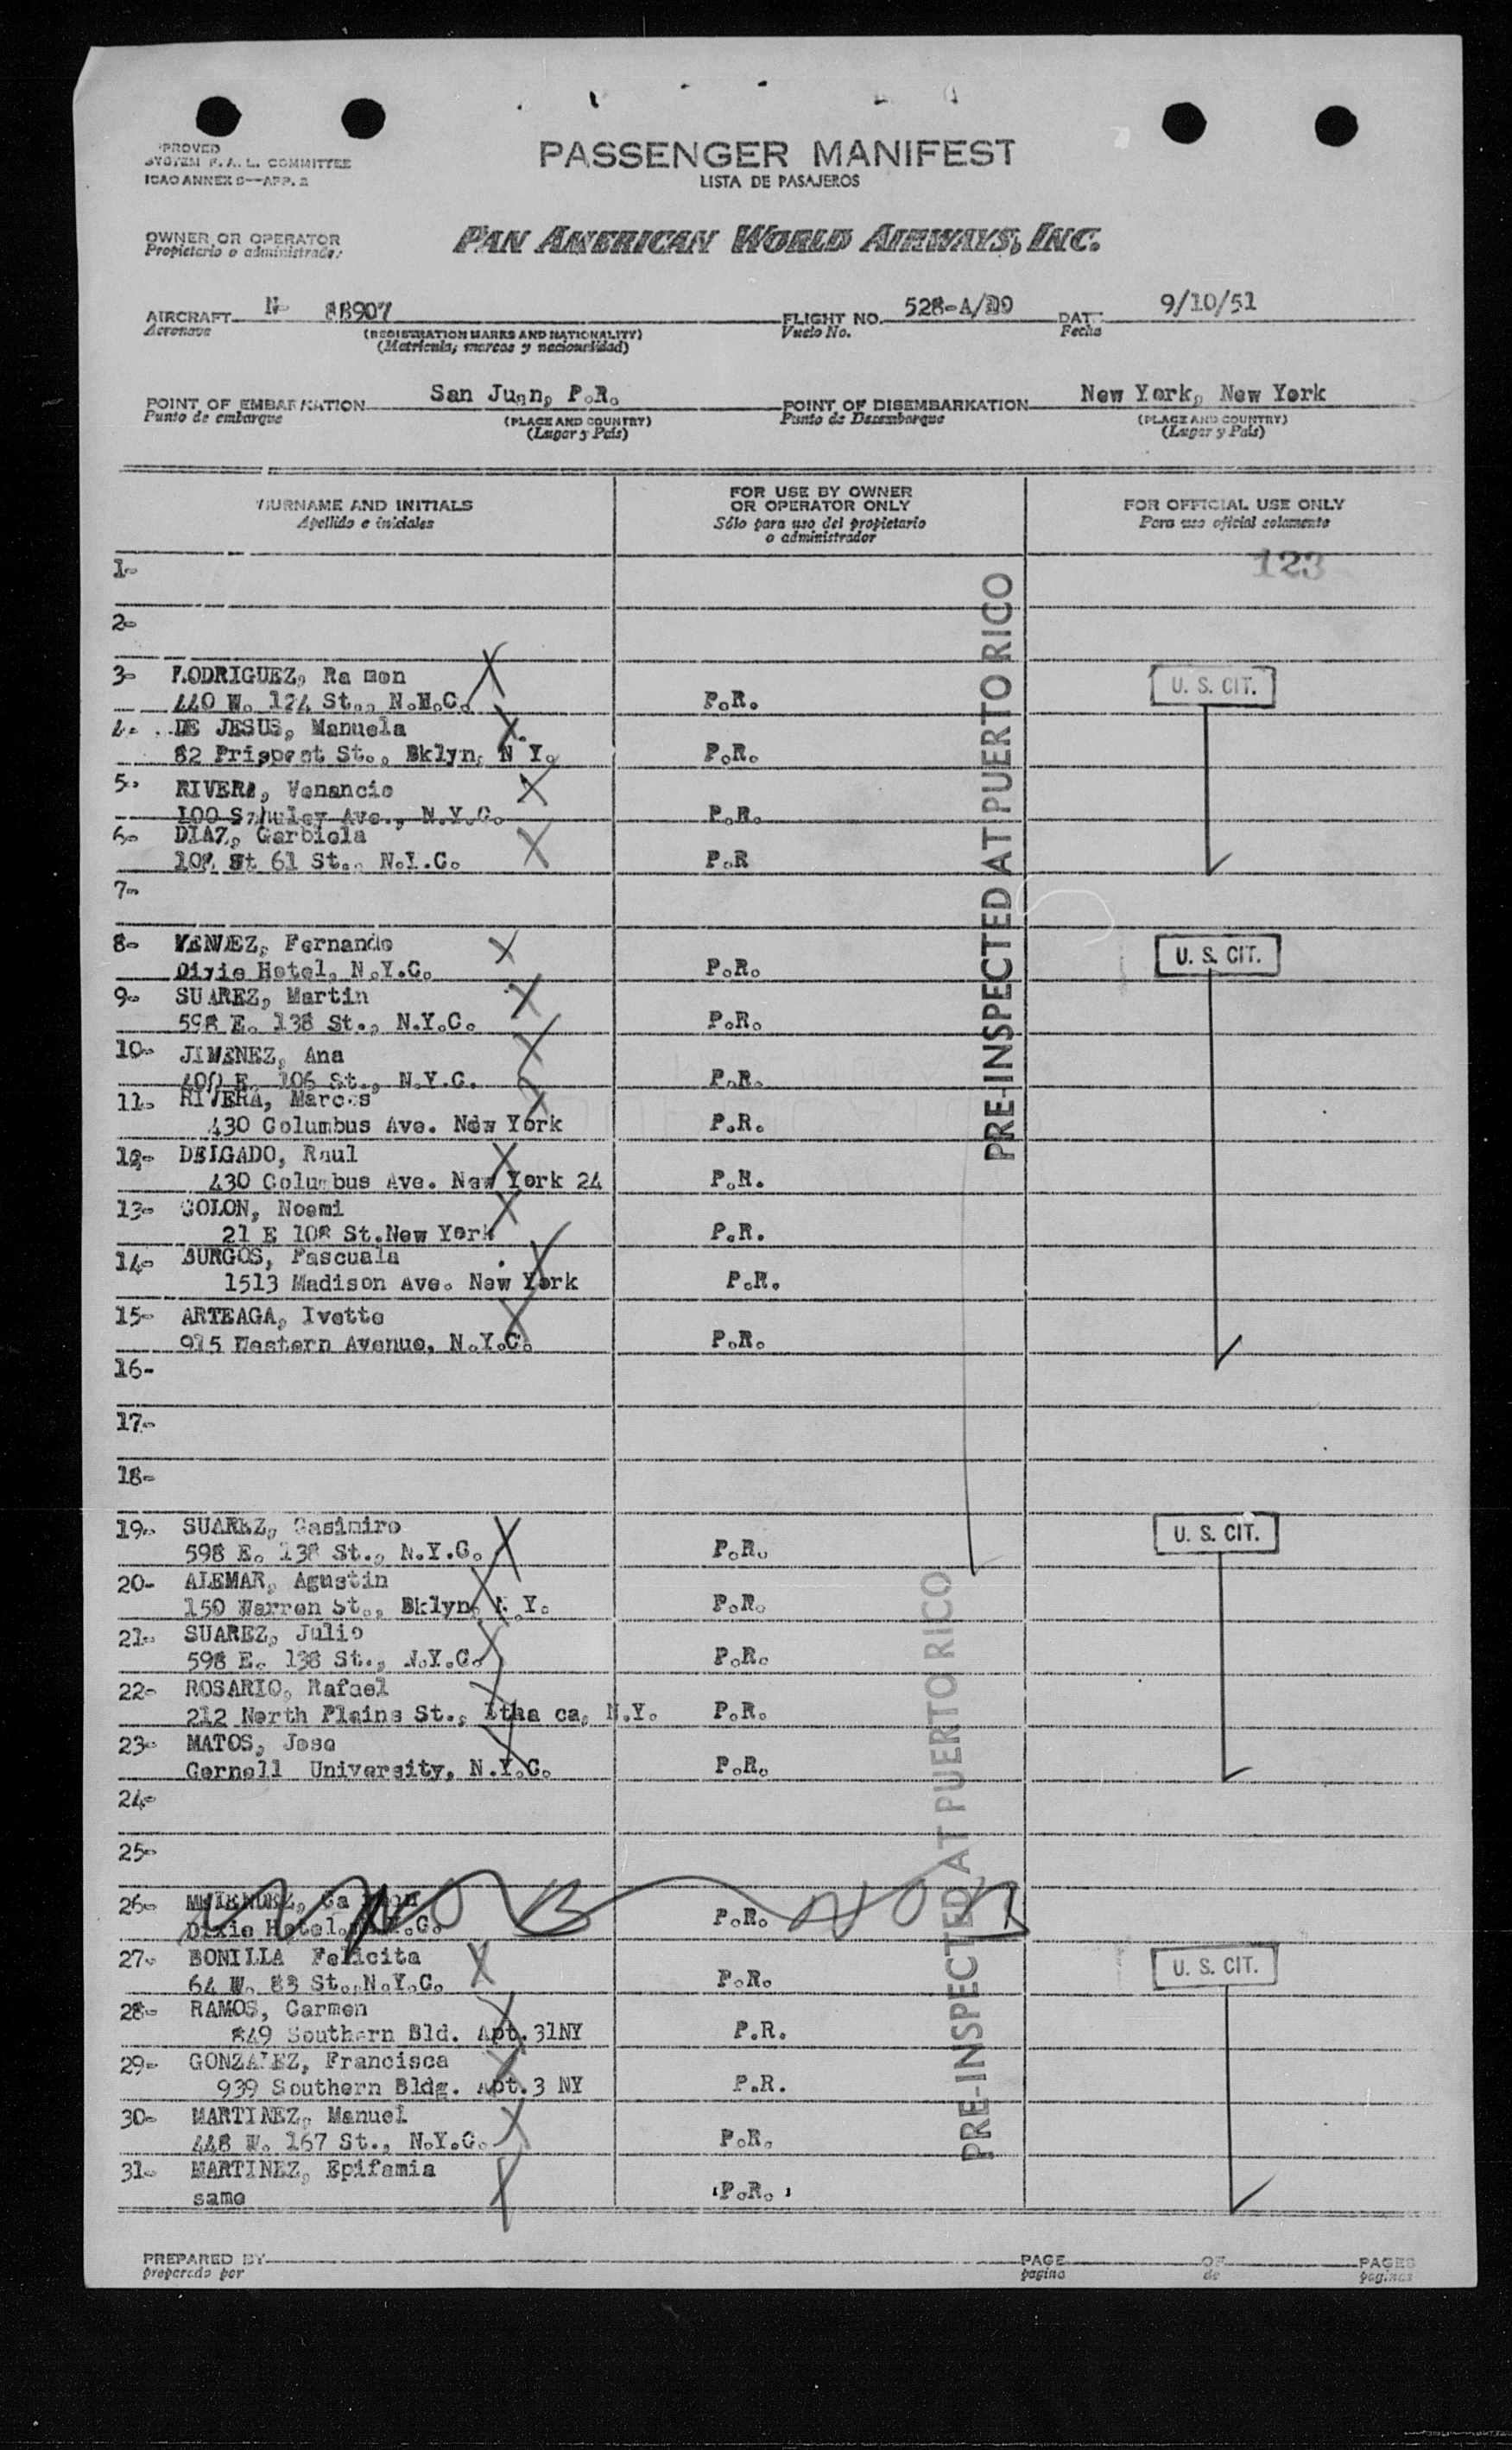 PROVED
SYSTEM F. A. L. COMMITTEE
ICAO ANNEX 9—APP. 2
PASSENGER MANIFEST
LISTA DE PASAJEROS
OWNER OR OPERATOR
Propietario o administrador
PAN AMERICAN WORLD AIRWAYS, INC.
AIRCRAFT N- 88907
Aeronave
(REGISTRATION MARKS AND NATIONALITY)
(Matrícula, marcas y nacionalidad)
FLIGHT NO. 528-A/
Vuelo No.
DATE 9/10/51
Fecha
POINT OF EMBARKATION San Juan, P.R.
Punto de embarque
(PLACE AND COUNTRY)
(Lugar y País)
POINT OF DISEMBARKATION New York, New York
Punto de Desembarque
(PLACE AND COUNTRY)
(Lugar y País)
SURNAME AND INITIALS
Apellido e iniciales
FOR USE BY OWNER
OR OPERATOR ONLY
Sólo para uso del propietario
o administrador
FOR OFFICIAL USE ONLY
Para uso oficial solamente
123
1-
2-
3- RODRIGUEZ, Ra mon
440 W. 124 St., N.Y.C. P.R.
U. S. CIT.
4- DE JESUS, Manuela
82 Prispect St., Bklyn, N Y. P.R.
5- RIVERA, Venancio
100 Ave., N.Y.C. P.R.
6- DIAZ, Garbiela
St 61 St., N.Y.C. P.R
7-
8- Fernando
Dixie Hotel, N.Y.C. P.R.
U. S. CIT.
9- SUAREZ, Martin
598 E. 138 St., N.Y.C. P.R.
10- JIMENEZ, Ana
400 E. 106 St., N.Y.C. P.R.
11- RIVERA, Marcos
430 Columbus Ave. New York P.R.
12- DELGADO, Raul
430 Columbus Ave. New York 24 P.R.
13- COLON, Noemi
21 E 108 St.New York P.R.
14- BURGOS, Pascuala
1513 Madison Ave. New York P.R.
15- ARTEAGA, Ivette
915 Western Avenue, N.Y.C. P.R.
16-
17-
18-
PRE-INSPECTED AT PUERTO RICO
19- SUAREZ, Casimiro
598 E. 138 St., N.Y.C. P.R.
U. S. CIT.
20- ALEMAR, Agustin
150 Warren St., Bklyn, N.Y. P.R.
21- SUAREZ, Julio
598 E. 138 St., N.Y.C. P.R.
22- ROSARIO, Rafael
212 North Plains St., Itha ca, N.Y. P.R.
23- MATOS, Jose
Cornell University, N.Y.C. P.R.
24-
25-
26- MELENDEZ,
Dixie Hotel, P.R.
27- BONILLA Felicita
64 W. 83 St.,N.Y.C. P.R.
U. S. CIT.
28- RAMOS, Carmen
849 Southern Bld. Apt.31NY P.R.
29- GONZALEZ, Francisca
939 Southern Bldg. Apt.3 NY P.R.
30- MARTINEZ, Manuel
448 W. 167 St., N.Y.C. P.R.
31- MARTINEZ, Epifamia
same P.R.
PRE-INSPECTED AT PUERTO RICO
PREPARED BY
preparado por
PAGE OF PAGES
pagina de paginas